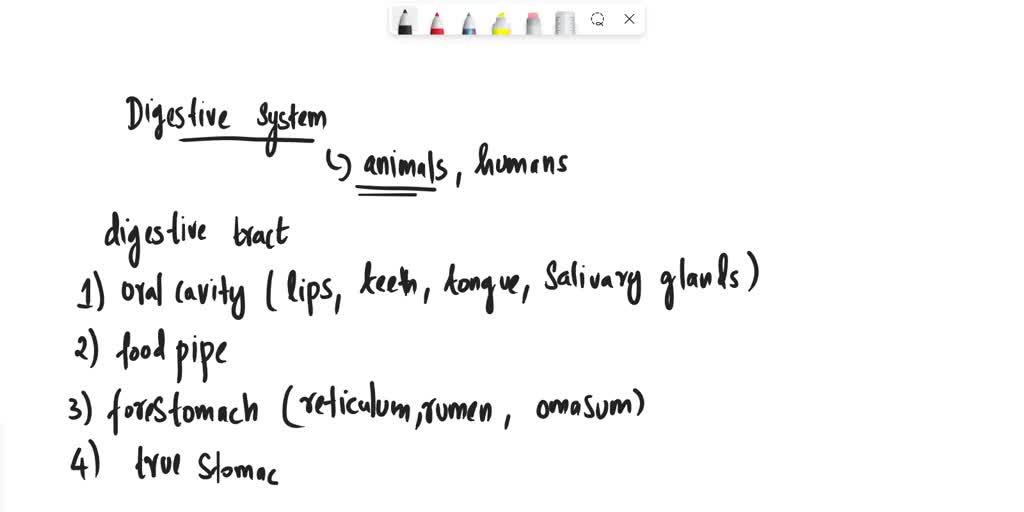 Digestive System
↳ animals, humans
digestive tract
1) oral cavity (lips, teeth, tongue, Salivary glands)
2) food pipe
3) foreStomach (reticulum, rumen, omasum)
4) true Stomac